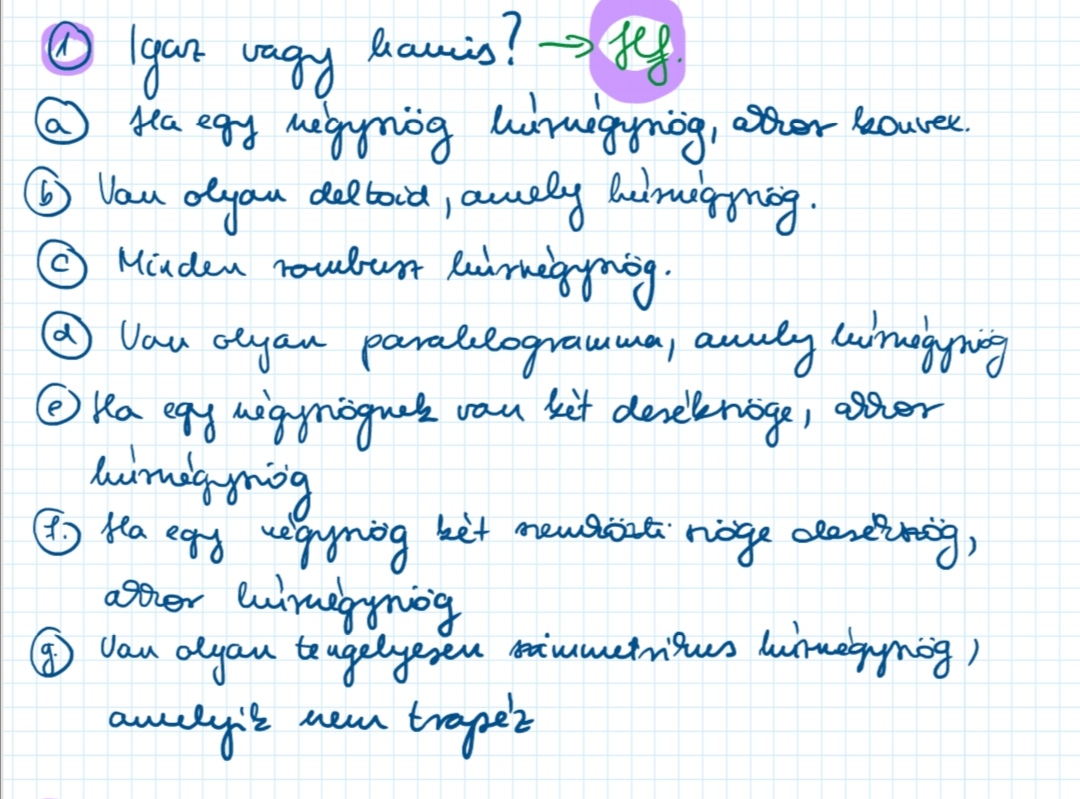 ① Igaz vagy hamis? → Hf.
ⓐ Ha egy négyszög húrnégyszög, akkor konvex.
ⓑ Van olyan deltoid, amely húrnégyszög.
ⓒ Minden rombusz húrnégyszög.
ⓓ Van olyan paralelogramma, amely húrnégyszög
ⓔ Ha egy négyszögnek van két derékszöge, akkor
húrnégyszög
ⓕ. Ha egy négyszög két szemközti szöge derékszög,
akkor húrnégyszög
ⓖ. Van olyan tengelyesen szimmetrikus húrnégyszög,
amelyik nem trapéz